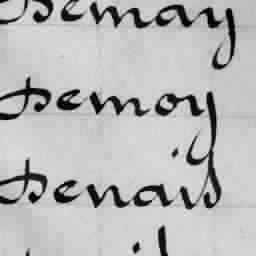 Demay
Demoy
Denais